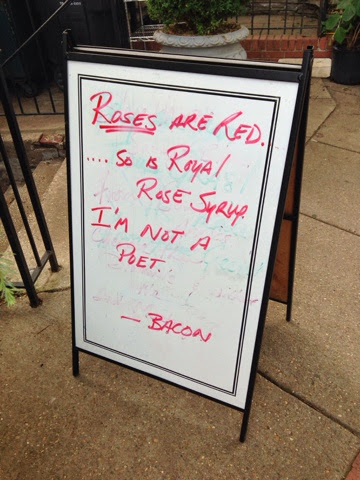 ROSES ARE RED.
.... SO IS ROYAL
ROSE SYRUP.
I'M NOT A
POET.
— BACON